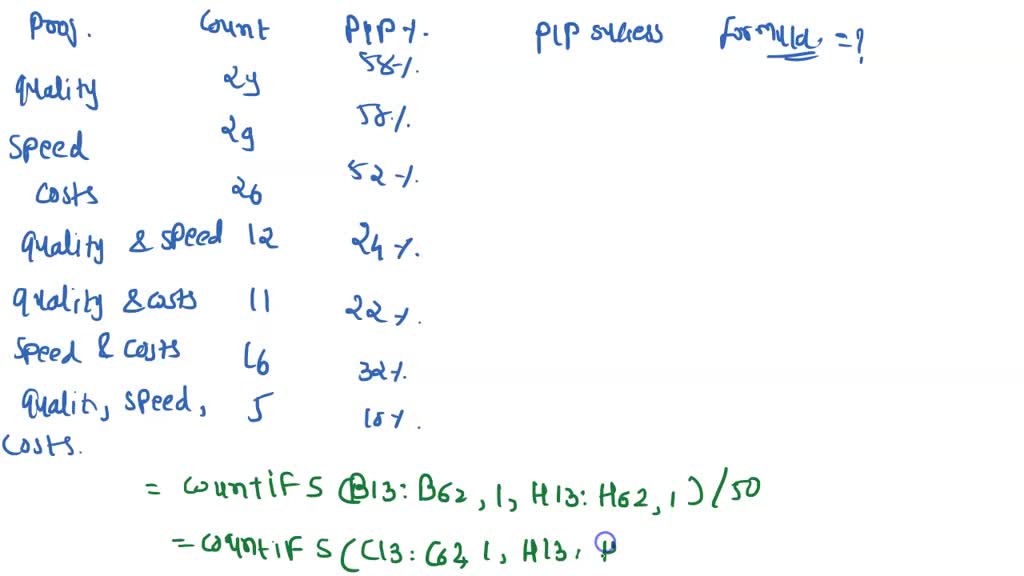 Proj. Count PIP %. PIP success formula. = ?
Quality 29 58%.
Speed 29 58%.
costs 26 52%.
Quality & speed 12 24%.
Quality & costs 11 22%.
Speed & costs 16 32%.
Quality, speed, 5 10%.
costs.
= countifs (B13:B62, 1, H13:H62, 1) / 50
= countifs (C13:C62, 1, H13: